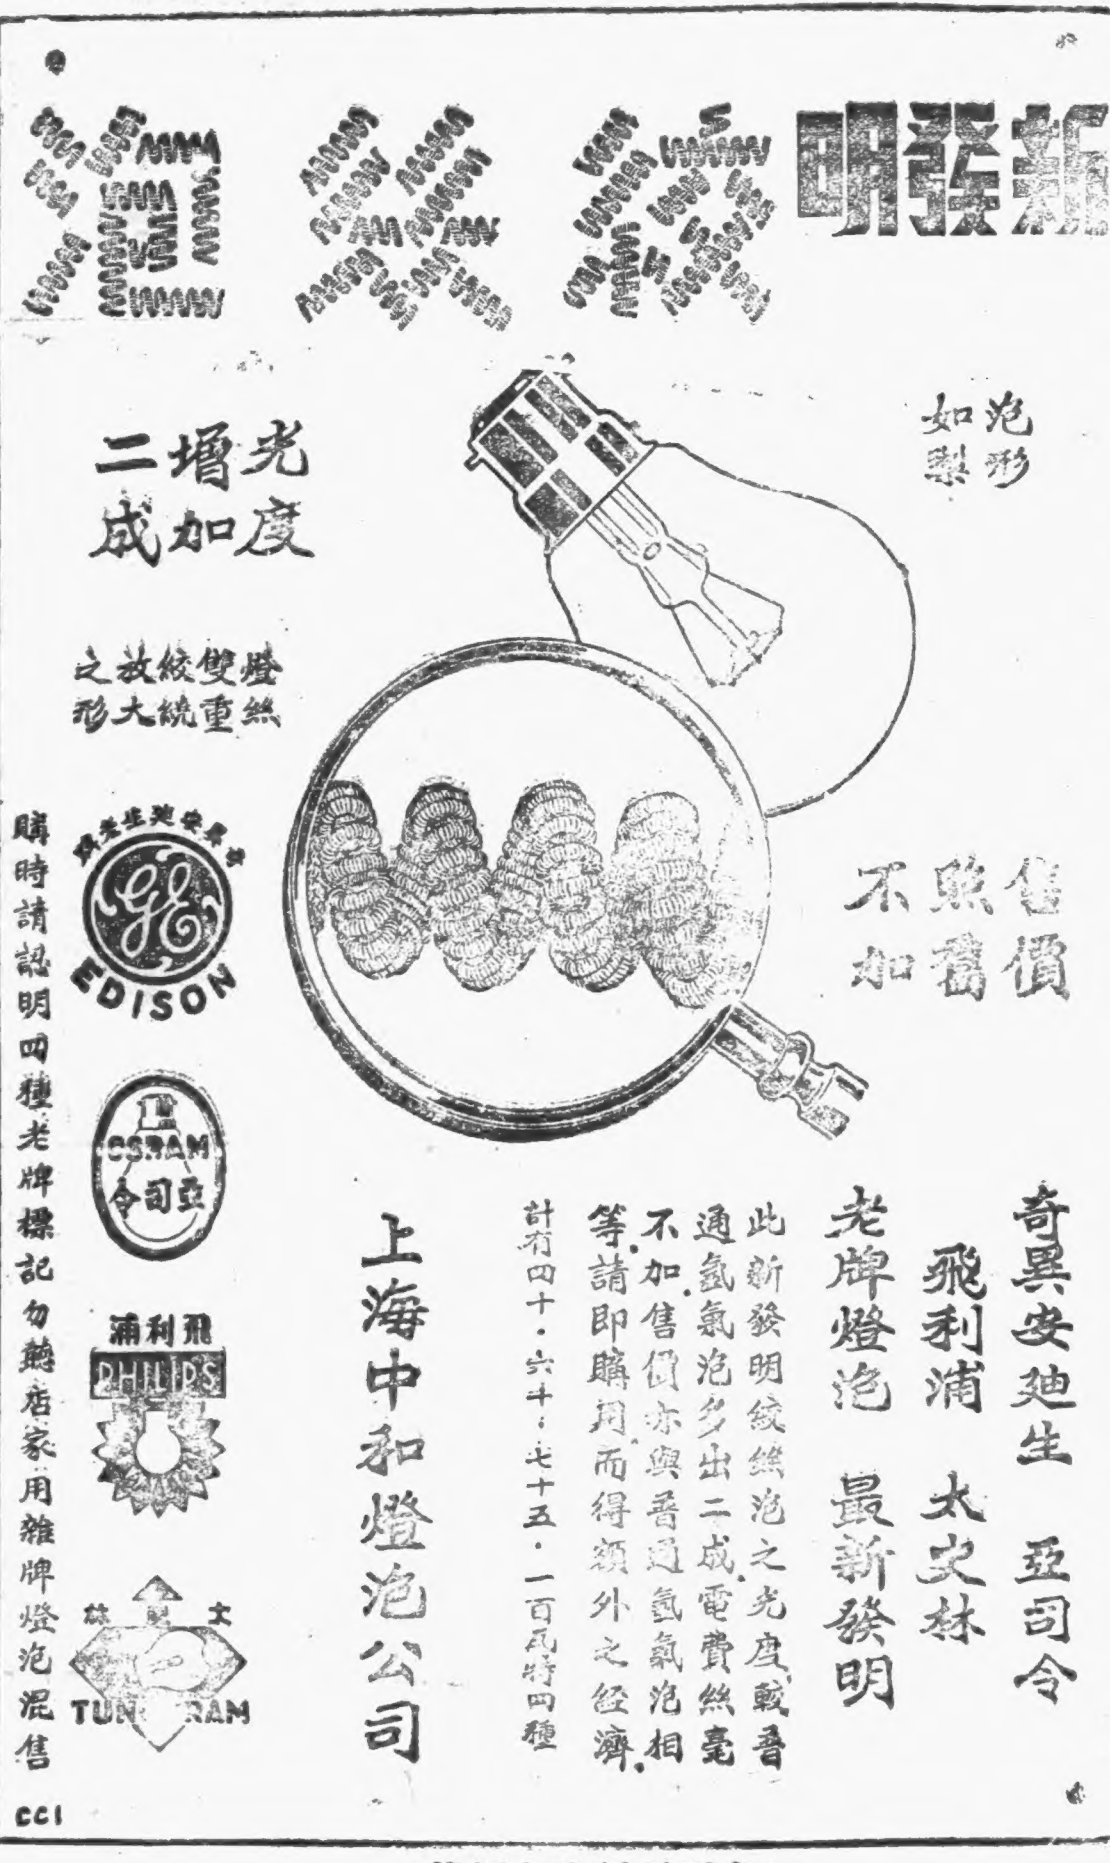 新發明
絞絲泡
泡形
如梨
光度
增加
二成
燈絲
雙重
絞繞
放大
之形
售價
照舊
不加
奇異安廸生 亞司令
飛利浦 太史林
老牌燈泡 最新發明
此新發明絞絲泡之光度較普
通氬氣泡多出二成電費絲毫
不加售價亦與普通氬氣泡相
等請即購用而得額外之經濟
計有四十·六十·七十五·一百瓦特四種
上海中和燈泡公司
奇異安廸生老牌
GE
EDISON
OSRAM
亞司令
飛利浦
PHILIPS
太史林
TUNGSRAM
購時請認明四種老牌標記勿聽店家用雜牌燈泡混售
CC1